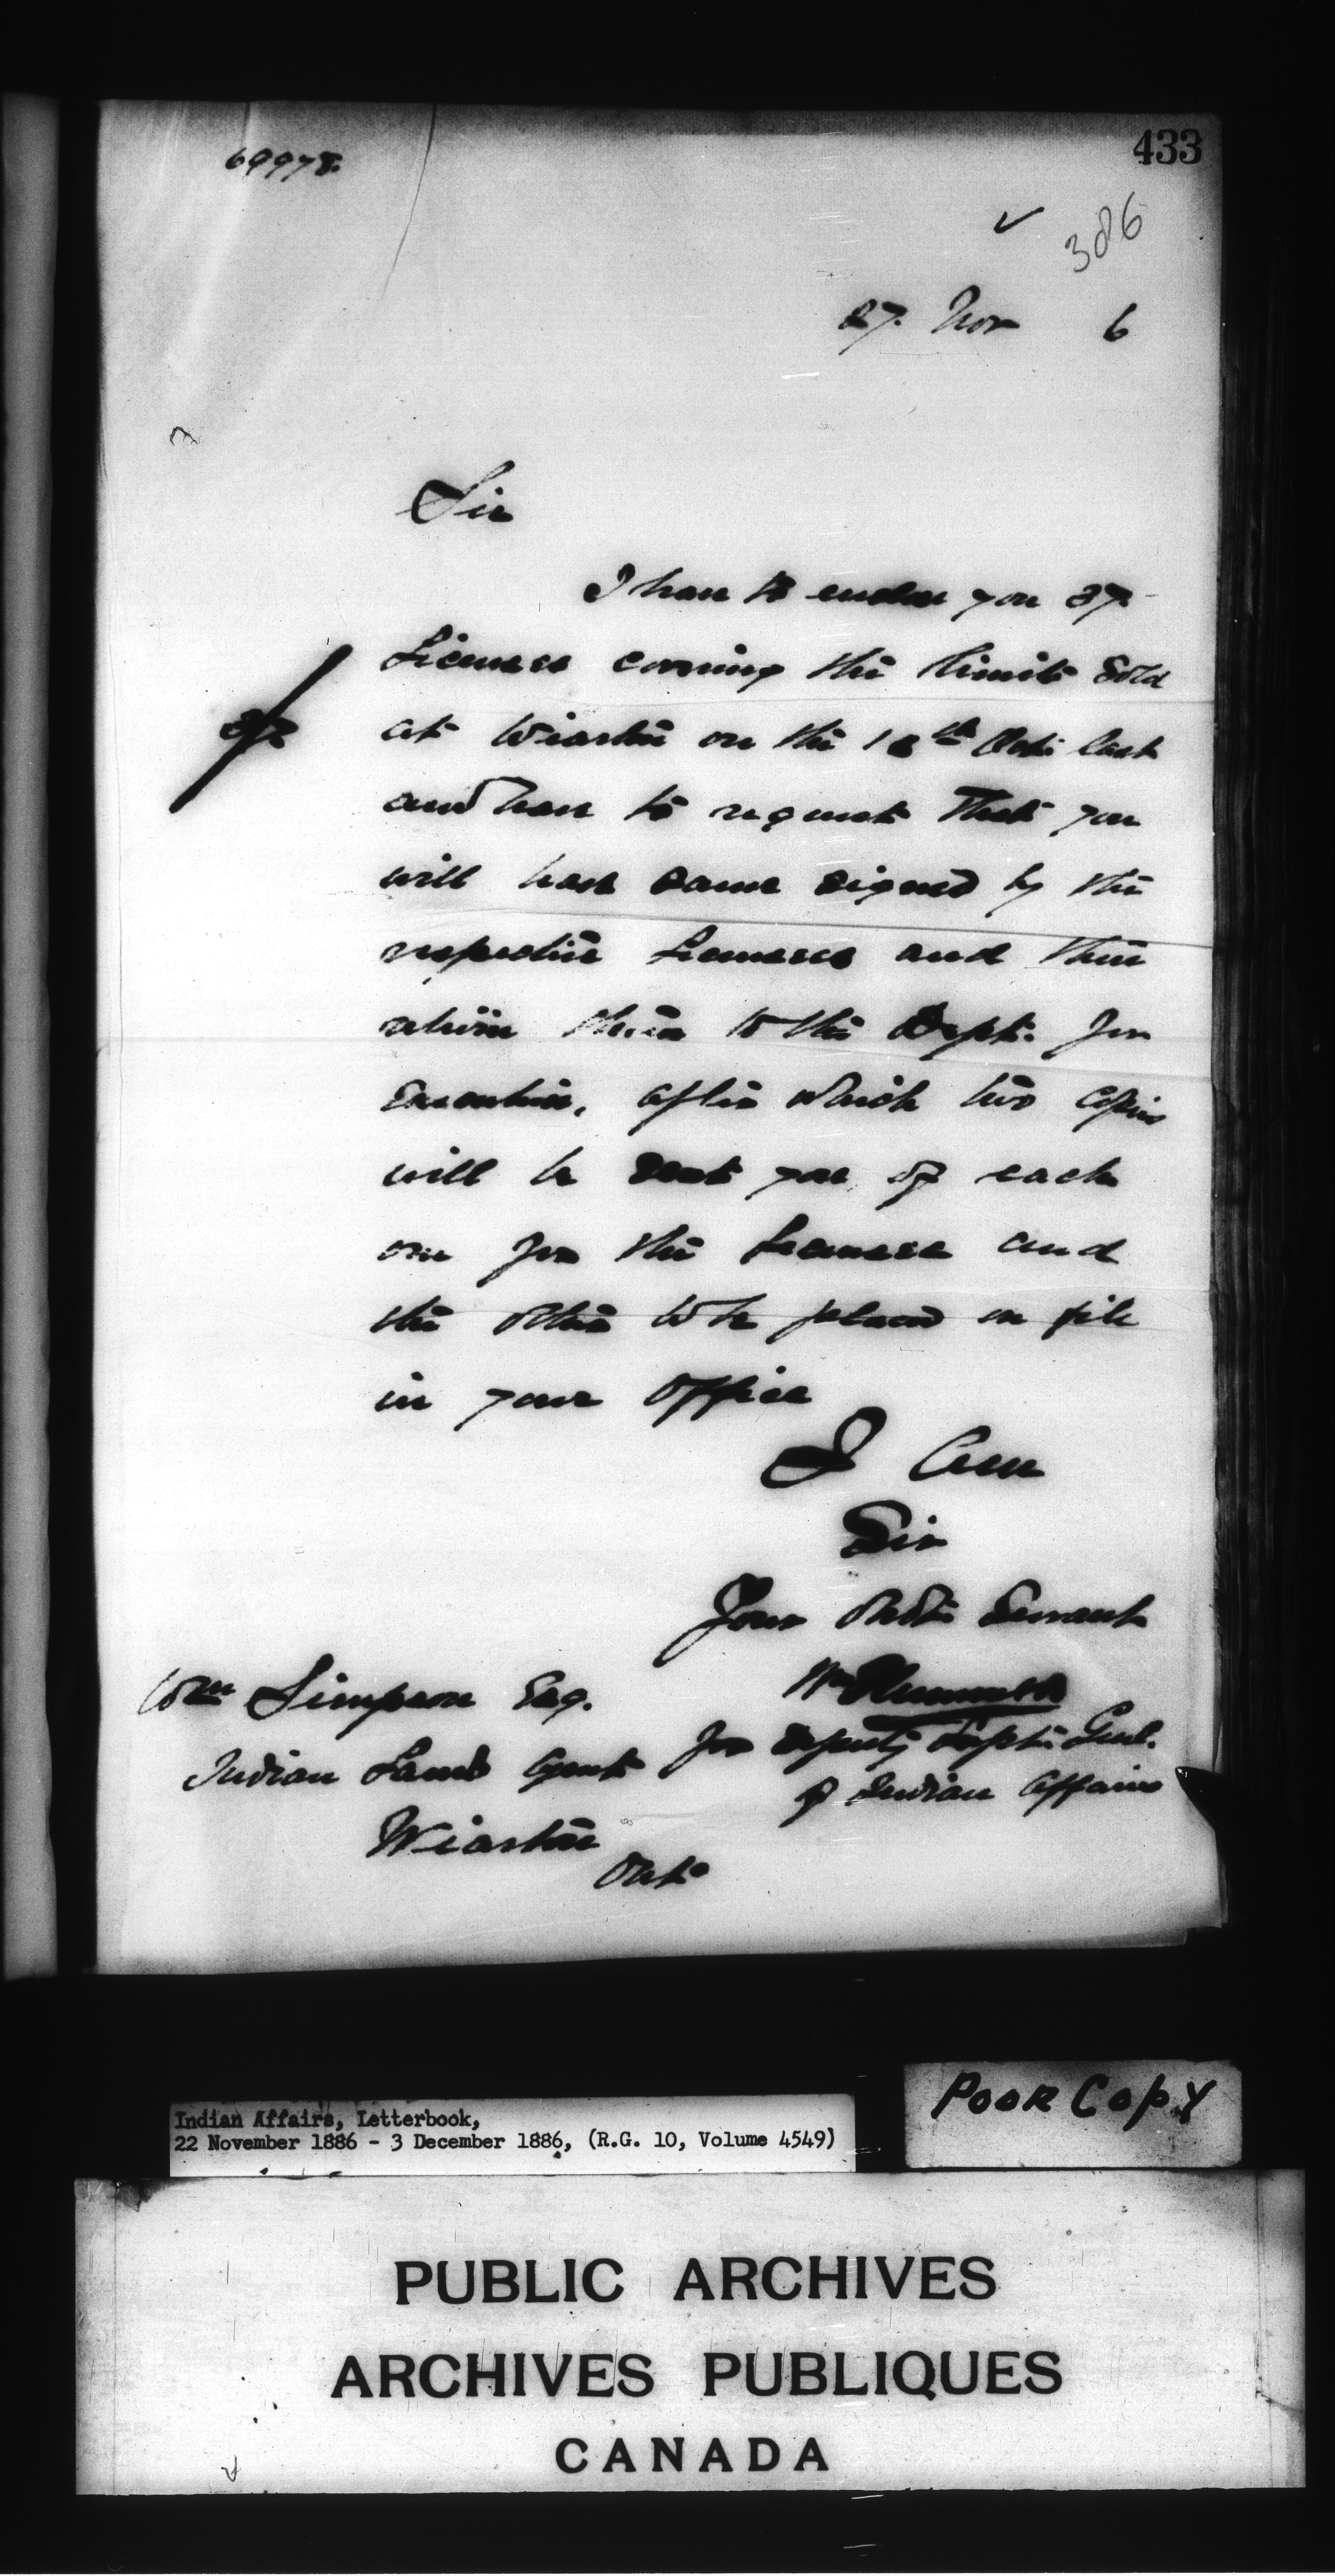 433
69978.
386
27. Nov 6
Sir
I have to enclose you 27
Licenses covering the limits sold
at Wiarton on the 18th Octr last
and have to request that you
will have same signed by the
respective Licensees and then
return them to the Dept. for
execution, after which two copies
will be sent you of each
one for the Licensee and
the other to be placed on file
in your office
I am
Sir
Your Obdt Servant
Wm Simpson Esq.
for Deputy Supt. Genl.
Indian Lands Agent
of Indian Affairs
Wiarton
Ont.
Indian Affairs, Letterbook,
22 November 1886 - 3 December 1886, (R.G. 10, Volume 4549)
POOR COPY
PUBLIC ARCHIVES
ARCHIVES PUBLIQUES
CANADA